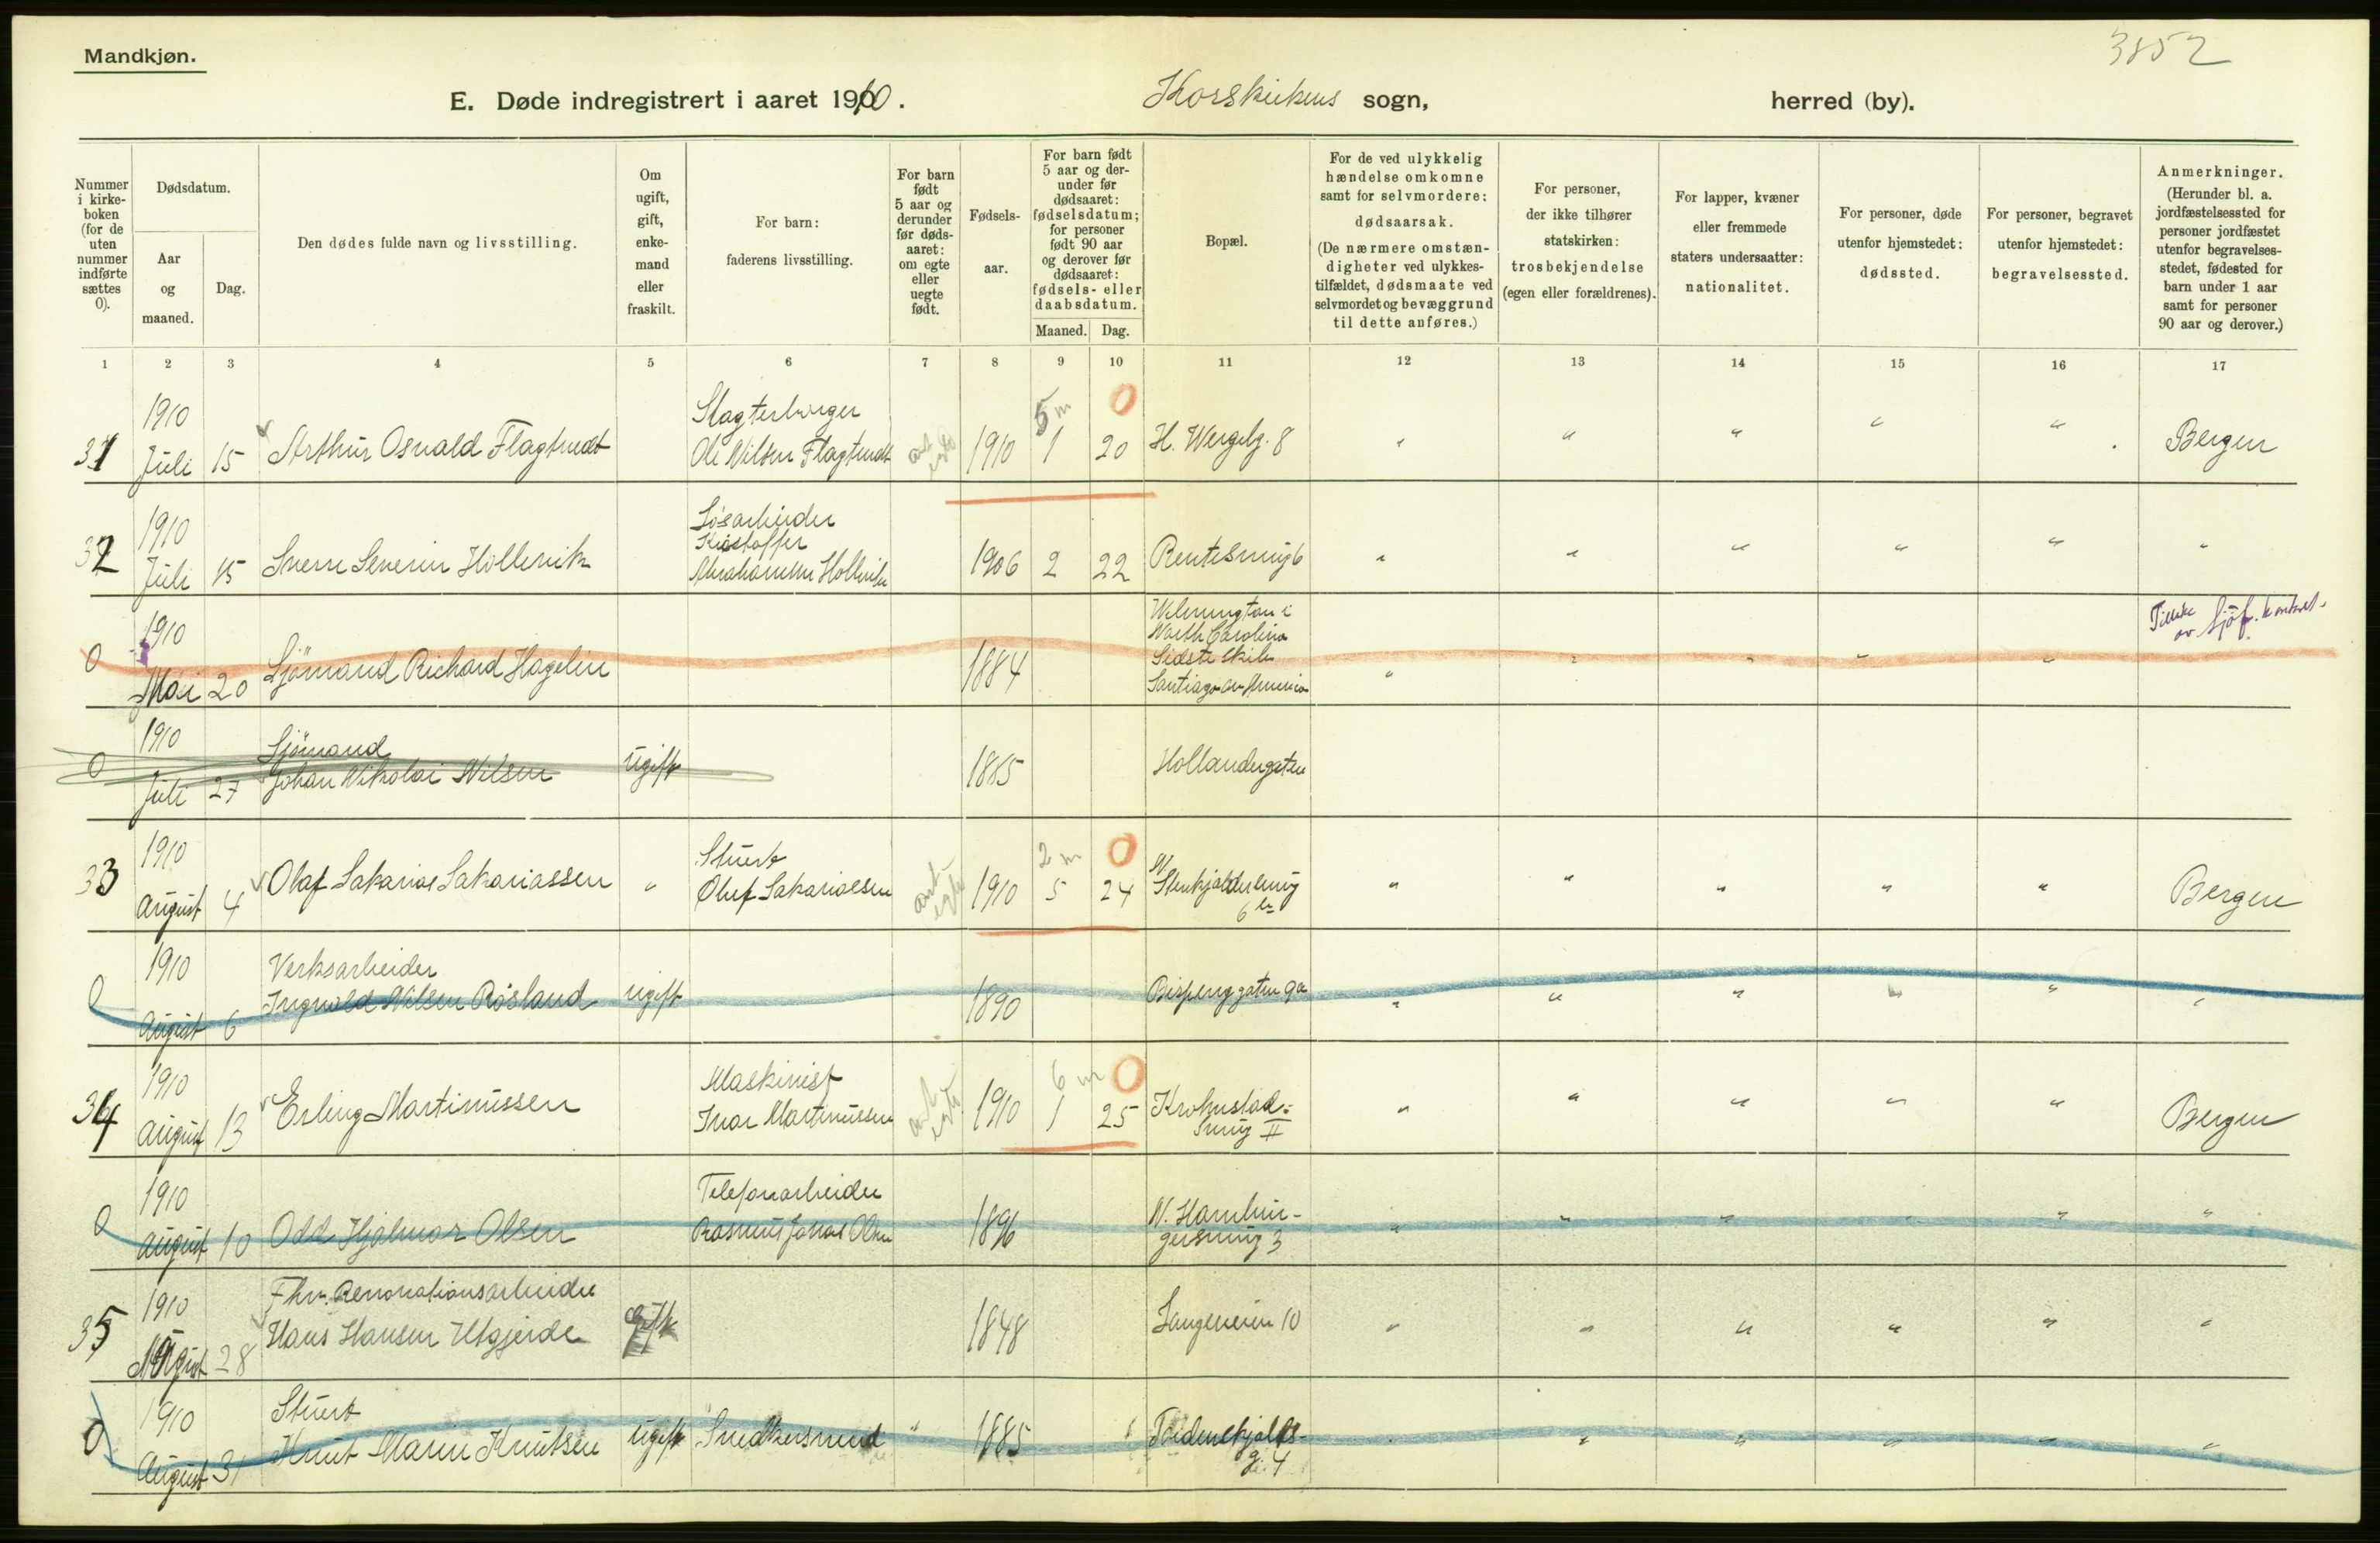 Mandkjøn.
3852
E. Døde indregistrert i aaret 1910.
Korskirkens sogn,
herred (by).
Nummer i kirke-boken (for de uten nummer indførte sættes 0).
Dødsdatum.
Aar og maaned.
Dag.
Den dødes fulde navn og livsstilling.
Om ugift, gift, enke-mand eller fraskilt.
For barn: faderens livsstilling.
For barn født 5 aar og derunder før døds-aaret: om egte eller uegte født.
Fødsels-aar.
For barn født 5 aar og der-under før dødsaaret: fødselsdatum; for personer født 90 aar og derover før dødsaaret: fødsels- eller daabsdatum.
Maaned. Dag.
Bopæl.
For de ved ulykkelig hændelse omkomne samt for selvmordere: dødsaarsak. (De nærmere omstæn-digheter ved ulykkes-tilfældet, dødsmaate ved selvmordet og bevæggrund til dette anføres.)
For personer, der ikke tilhører statskirken: trosbekjendelse (egen eller forældrenes).
For lapper, kvæner eller fremmede staters undersaatter: nationalitet.
For personer, døde utenfor hjemstedet: dødssted.
For personer, begravet utenfor hjemstedet: begravelsessted.
Anmerkninger. (Herunder bl. a. jordfæstelsessted for personer jordfæstet utenfor begravelses-stedet, fødested for barn under 1 aar samt for personer 90 aar og derover.)
1 2 3 4 5 6 7 8 9 10 11 12 13 14 15 16 17
31 1910 Juli 15 Arthur Osvald Flagtvedt Slagterborger Ole Nilsen Flagtvedt ant egte 1910 5 m 1 0 20 H. Wergelg. 8 " " " " " Bergen
32 1910 Juli 15 Sverre Severin Hollevik Løsarbeider Kristoffer Abrahamsen Hollevik 1906 2 22 Rentesmug 6 " " " " " "
0 1910 Mai 20 Sjömand Richard Hagelin 1884 Wilmington i North Carolina Sidste skib Santiago av America " " " " " Tilkike av Sjöf. kontrol.
0 1910 Juli 27 Sjömand Johan Nikolai Nilsen Ugift 1885 Hollandergaten
33 1910 August 4 Olaf Sakarias Sakariassen " Stuert Oluf Sakariassen ant egte 1910 2 m 5 0 24 N Stenkjældersmug 6 " " " " " Bergen
0 1910 August 6 Verksarbeider Ingvald Nilsen Røsland ugift 1890 Bispenggaten 9a " " " " " "
34 1910 August 13 Erling Martinussen Maskinist Ivar Martinussen ant egte 1910 6 m 1 0 25 Krohnstad: smug II " " " " " Bergen
0 1910 August 10 Odd Hjalmar Olsen Telefonarbeider Rasmus Johan Olsen 1896 N. Hambur-gersmug 3 " " " " " "
35 1910 August 28 Fhv. Renovationsarbeider Hans Hansen Utgjerde Gift 1848 Langeveien 10 " " " " " "
0 1910 August 31 Stuert Knut Marin Knutsen Ugift Snedkersvend " 1885 Tordenskjolds-g. 4 " " " " "